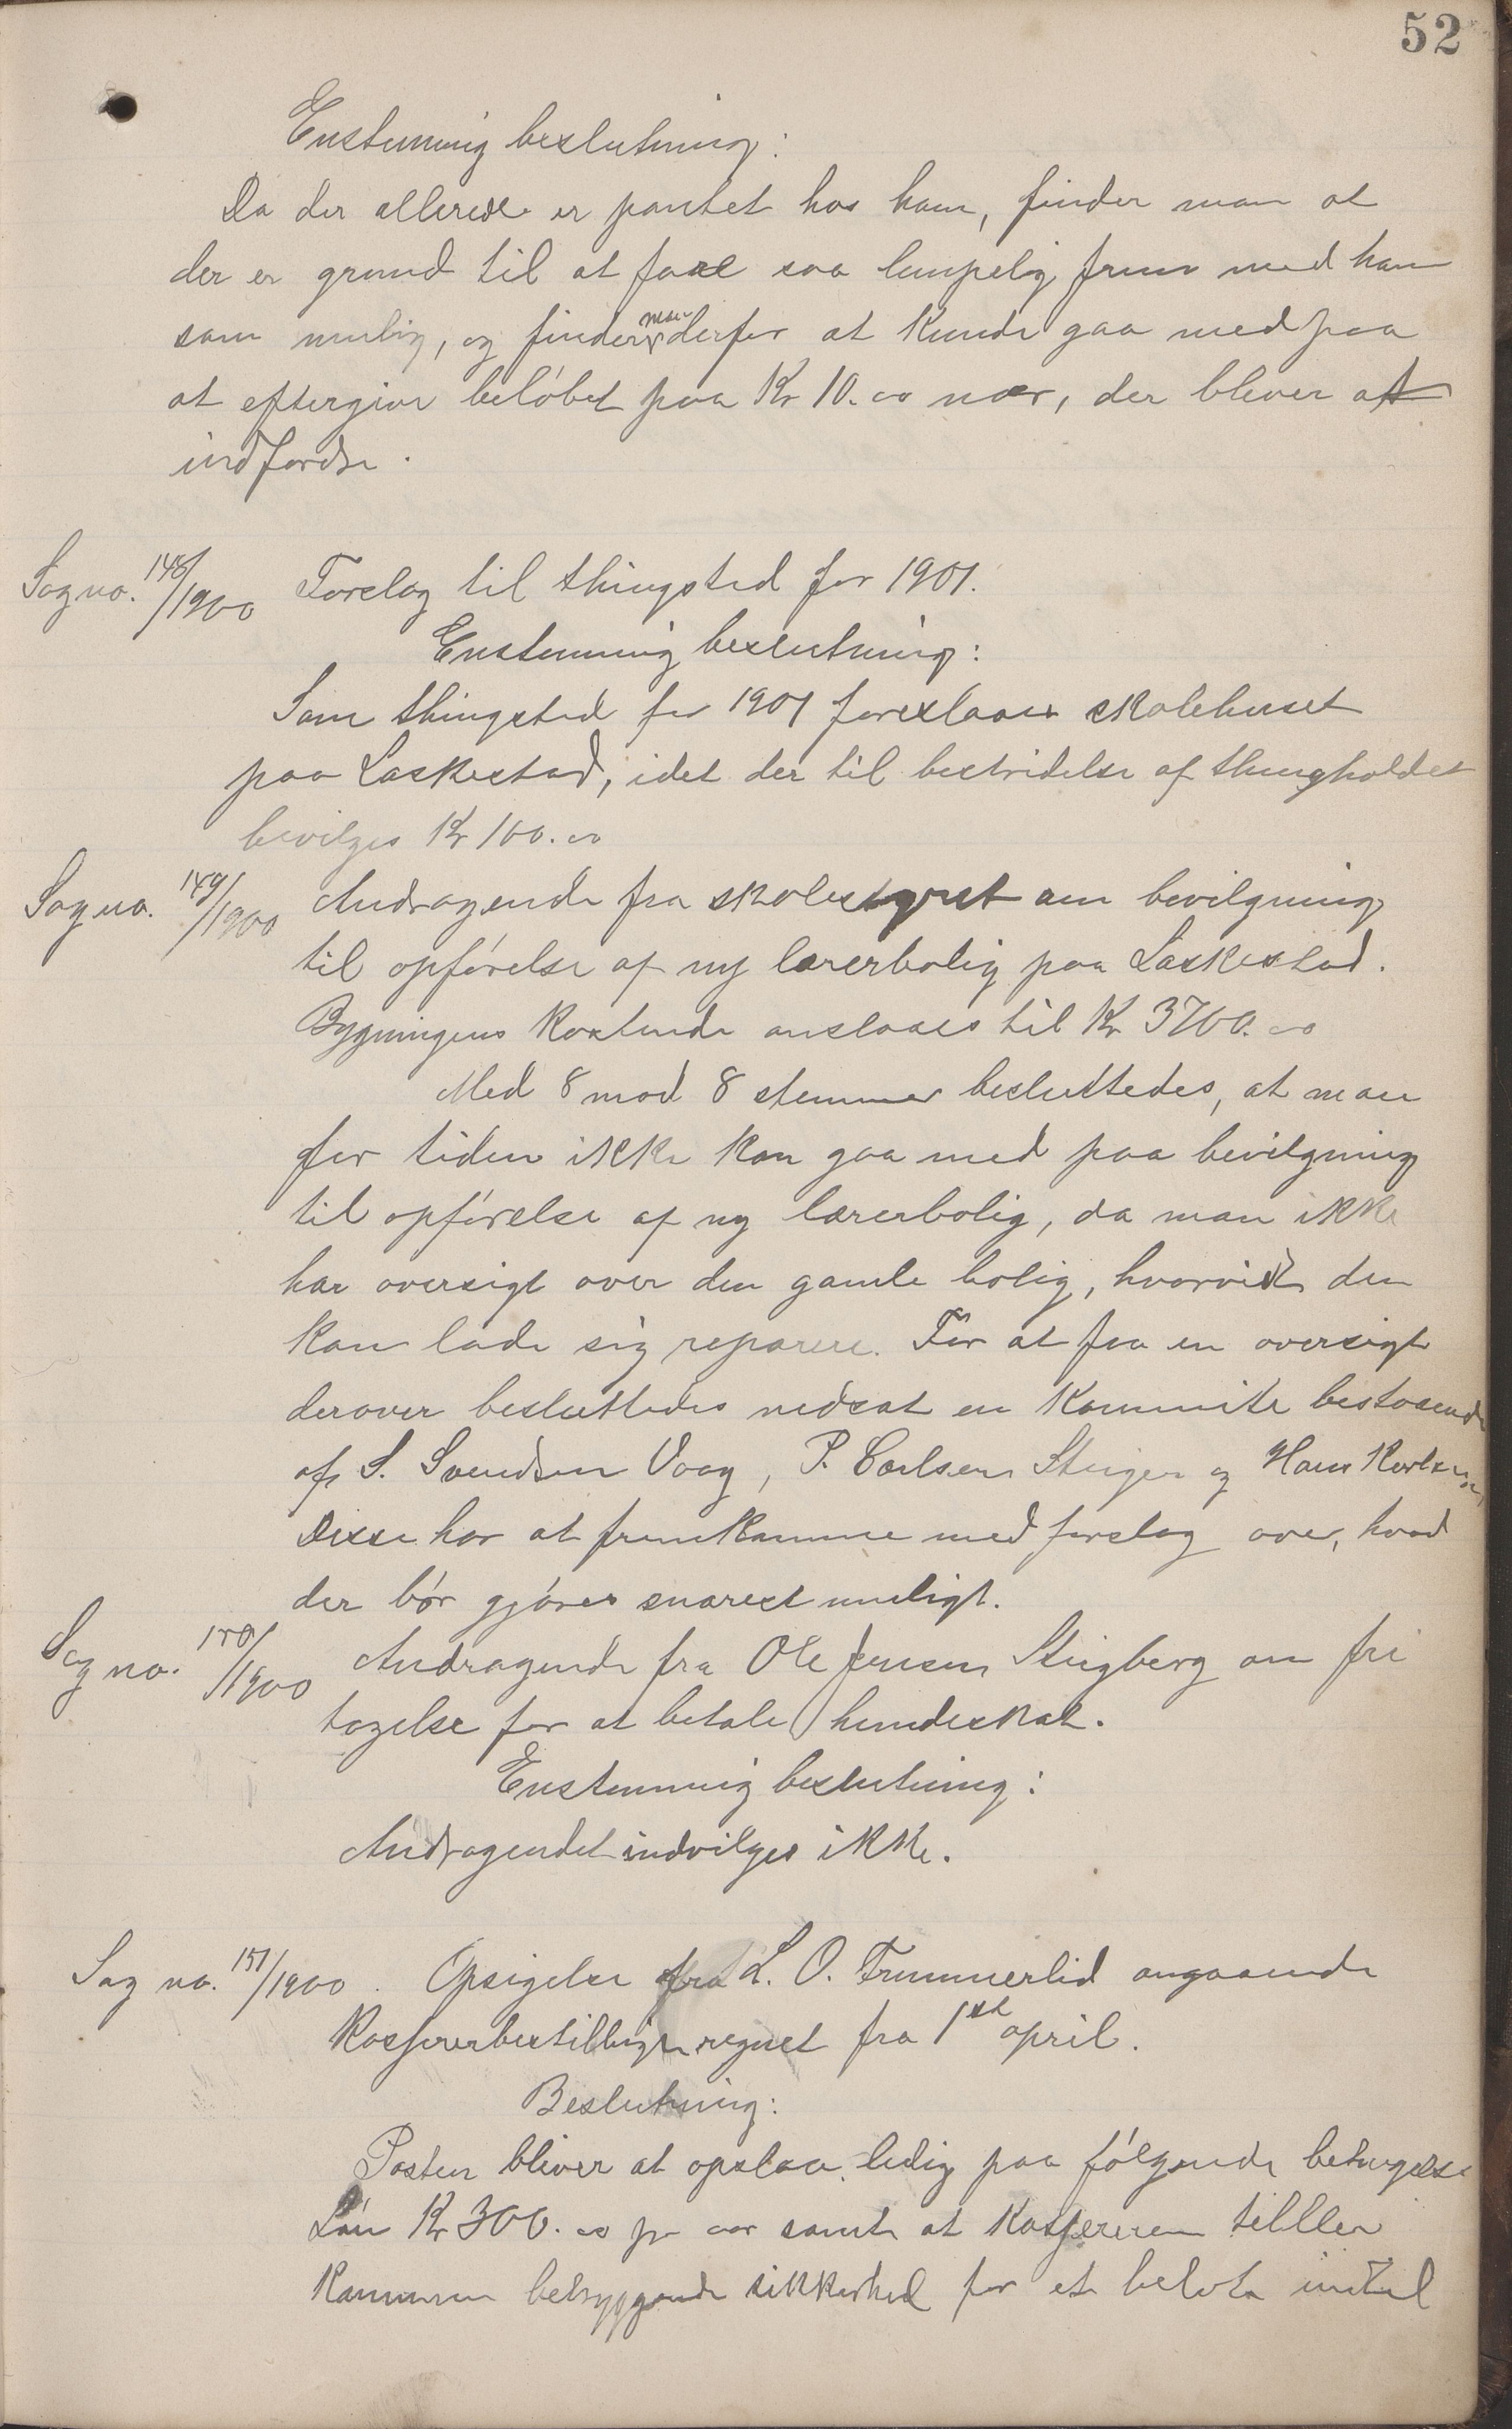 52
Enstemmig beslutning:
Da der allerede er pantet hos ham, finder man at
der er grund til at fare saa lempelig frem med ham
som mulig, og finder man derfor at kunde gaa med paa
at eftergive beløbet paa Kr 10.00 nær, der blever at
indfordre.
Sag no. 148/1900 Forslag til thingsted for 1901.
Enstemmig beslutning:
Som thingsted for 1901 foreslaaes skolehuset
paa Laskestad, idet der til bestridelse af thingholdet
bevilges Kr 100.00
Sag no. 149/1900 Andragende fra skolestyret om bevilgning
til opførelse af ny lærerbolig paa Laskestad.
Bygningens kostende anslaaes til Kr 3700.00
Med 8 mod 8 stemmer besluttedes, at man
for tiden ikke kan gaa med paa bevilgning
til opførelse af ny lærerbolig, da man ikke
har oversigt over den gamle bolig, hvorvidt den
kan lade sig reparere. For at faa en oversigt
derover besluttedes nedsat en kommite bestaaende
af S. Svendsen Vaag, P. Carlsen Steiger og Hans Karlsen,
Disse har at fremkomme med forslag over, hvad
der bør gjøres snarest muligt.
Sag no. 150/1900 Andragende fra Ole Jensen Stigberg om fri
tagelse for at betale hundeskat.
Enstemmig beslutning:
Andragendet indvilges ikke.
Sag no. 151/1900. Opsigelse fra L. O. Trummerlid angaaende
Kasserer bestillingen regnet fra 1st april.
Beslutning:
Posten bliver at opslaa ledig paa følgende betingelse
Løn Kr 300.00 pr aar samt at Kassereren stiller
Kommunen betryggende sikkerhed for et beløb indtil